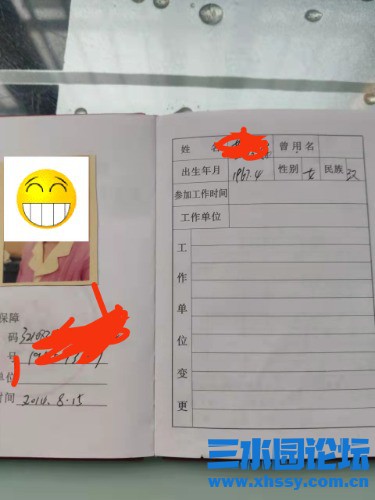 保障
码 32108
号 19
单位
时间 2014.8.15
姓 名 曾用名
出生年月 1967.4 性别 女 民族 汉
参加工作时间
工作单位
工作单位变更
三水园论坛
www.xhssy.com.cn